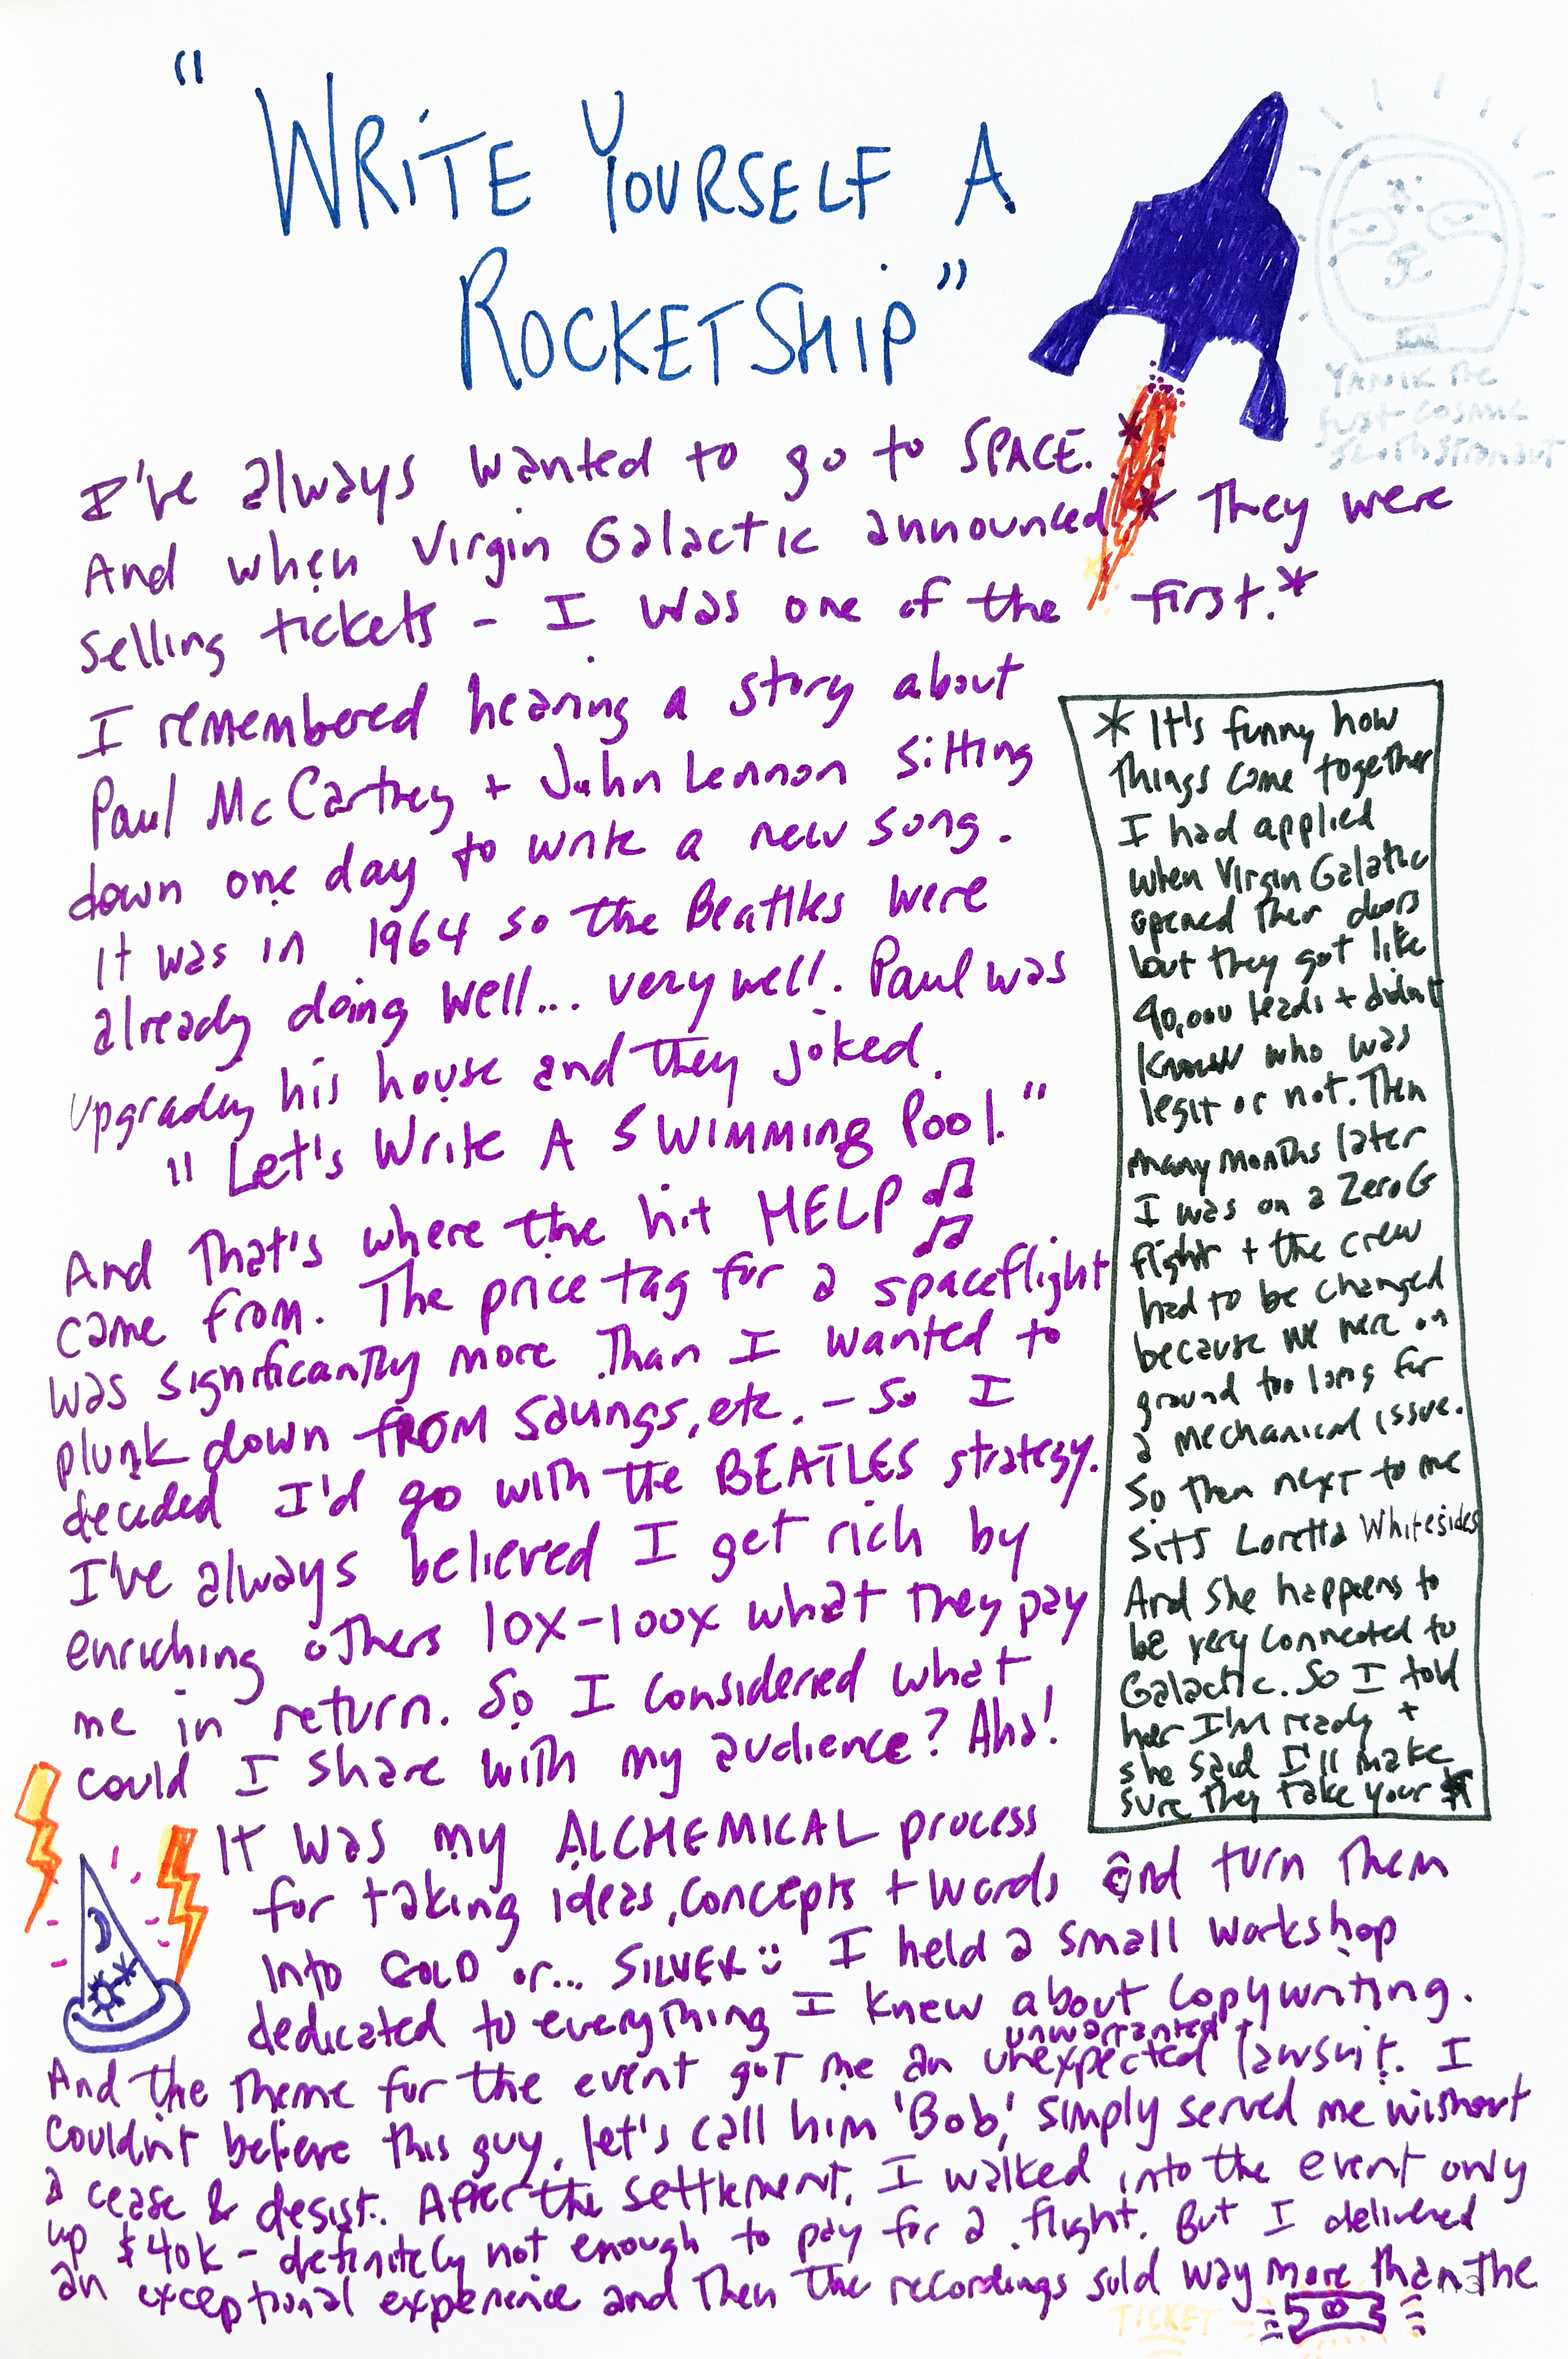 "WRITE YOURSELF A
ROCKETSHIP"
YANIK the
first cosmic
slothstronaut
I've always wanted to go to SPACE.
And when Virgin Galactic announced * They were
selling tickets - I was one of the first.*
I remembered hearing a story about
Paul McCartney + John Lennon sitting
down one day to write a new song.
It was in 1964 so the Beattles were
already doing well... very well. Paul was
upgrading his house and they joked.
"Let's Write A SWIMMING Pool."
And That's where the hit HELP
came from. The price tag for a spaceflight
was significantly more Than I wanted to
plunk down FROM savings, etc. - So I
decided I'd go with the BEATLES strategy.
I've always believed I get rich by
enriching others 10X-100X what They pay
me in return. So I considered what
could I share with my audience? Aha!
It was my ALCHEMICAL process
for taking ideas, concepts + words and turn Them
into GOLD or... SILVER :) I held a small workshop
dedicated to everything I knew about Copywriting.
unwarranted +
And the Theme for the event got me an unexpected lawsuit. I
couldn't believe this guy, let's call him 'Bob', simply served me without
a cease & desist. After the settlement, I walked into the event only
up $40k - definitely not enough to pay for a flight. But I delivered
an exceptional experience and Then the recordings sold way more than the
TICKET
* It's funny how
things come together
I had applied
when Virgin Galatic
opened Their doors
but they got like
40,000 leads + didn't
know who was
legit or not. Then
many months later
I was on a ZeroG
flight + the crew
had to be changed
because we were on
ground too long for
a mechanical issue.
So then next to me
sits Loretta Whitesides
And she happens to
be very connected to
Galactic. So I told
her I'm ready +
she said I'll make
sure they take your $